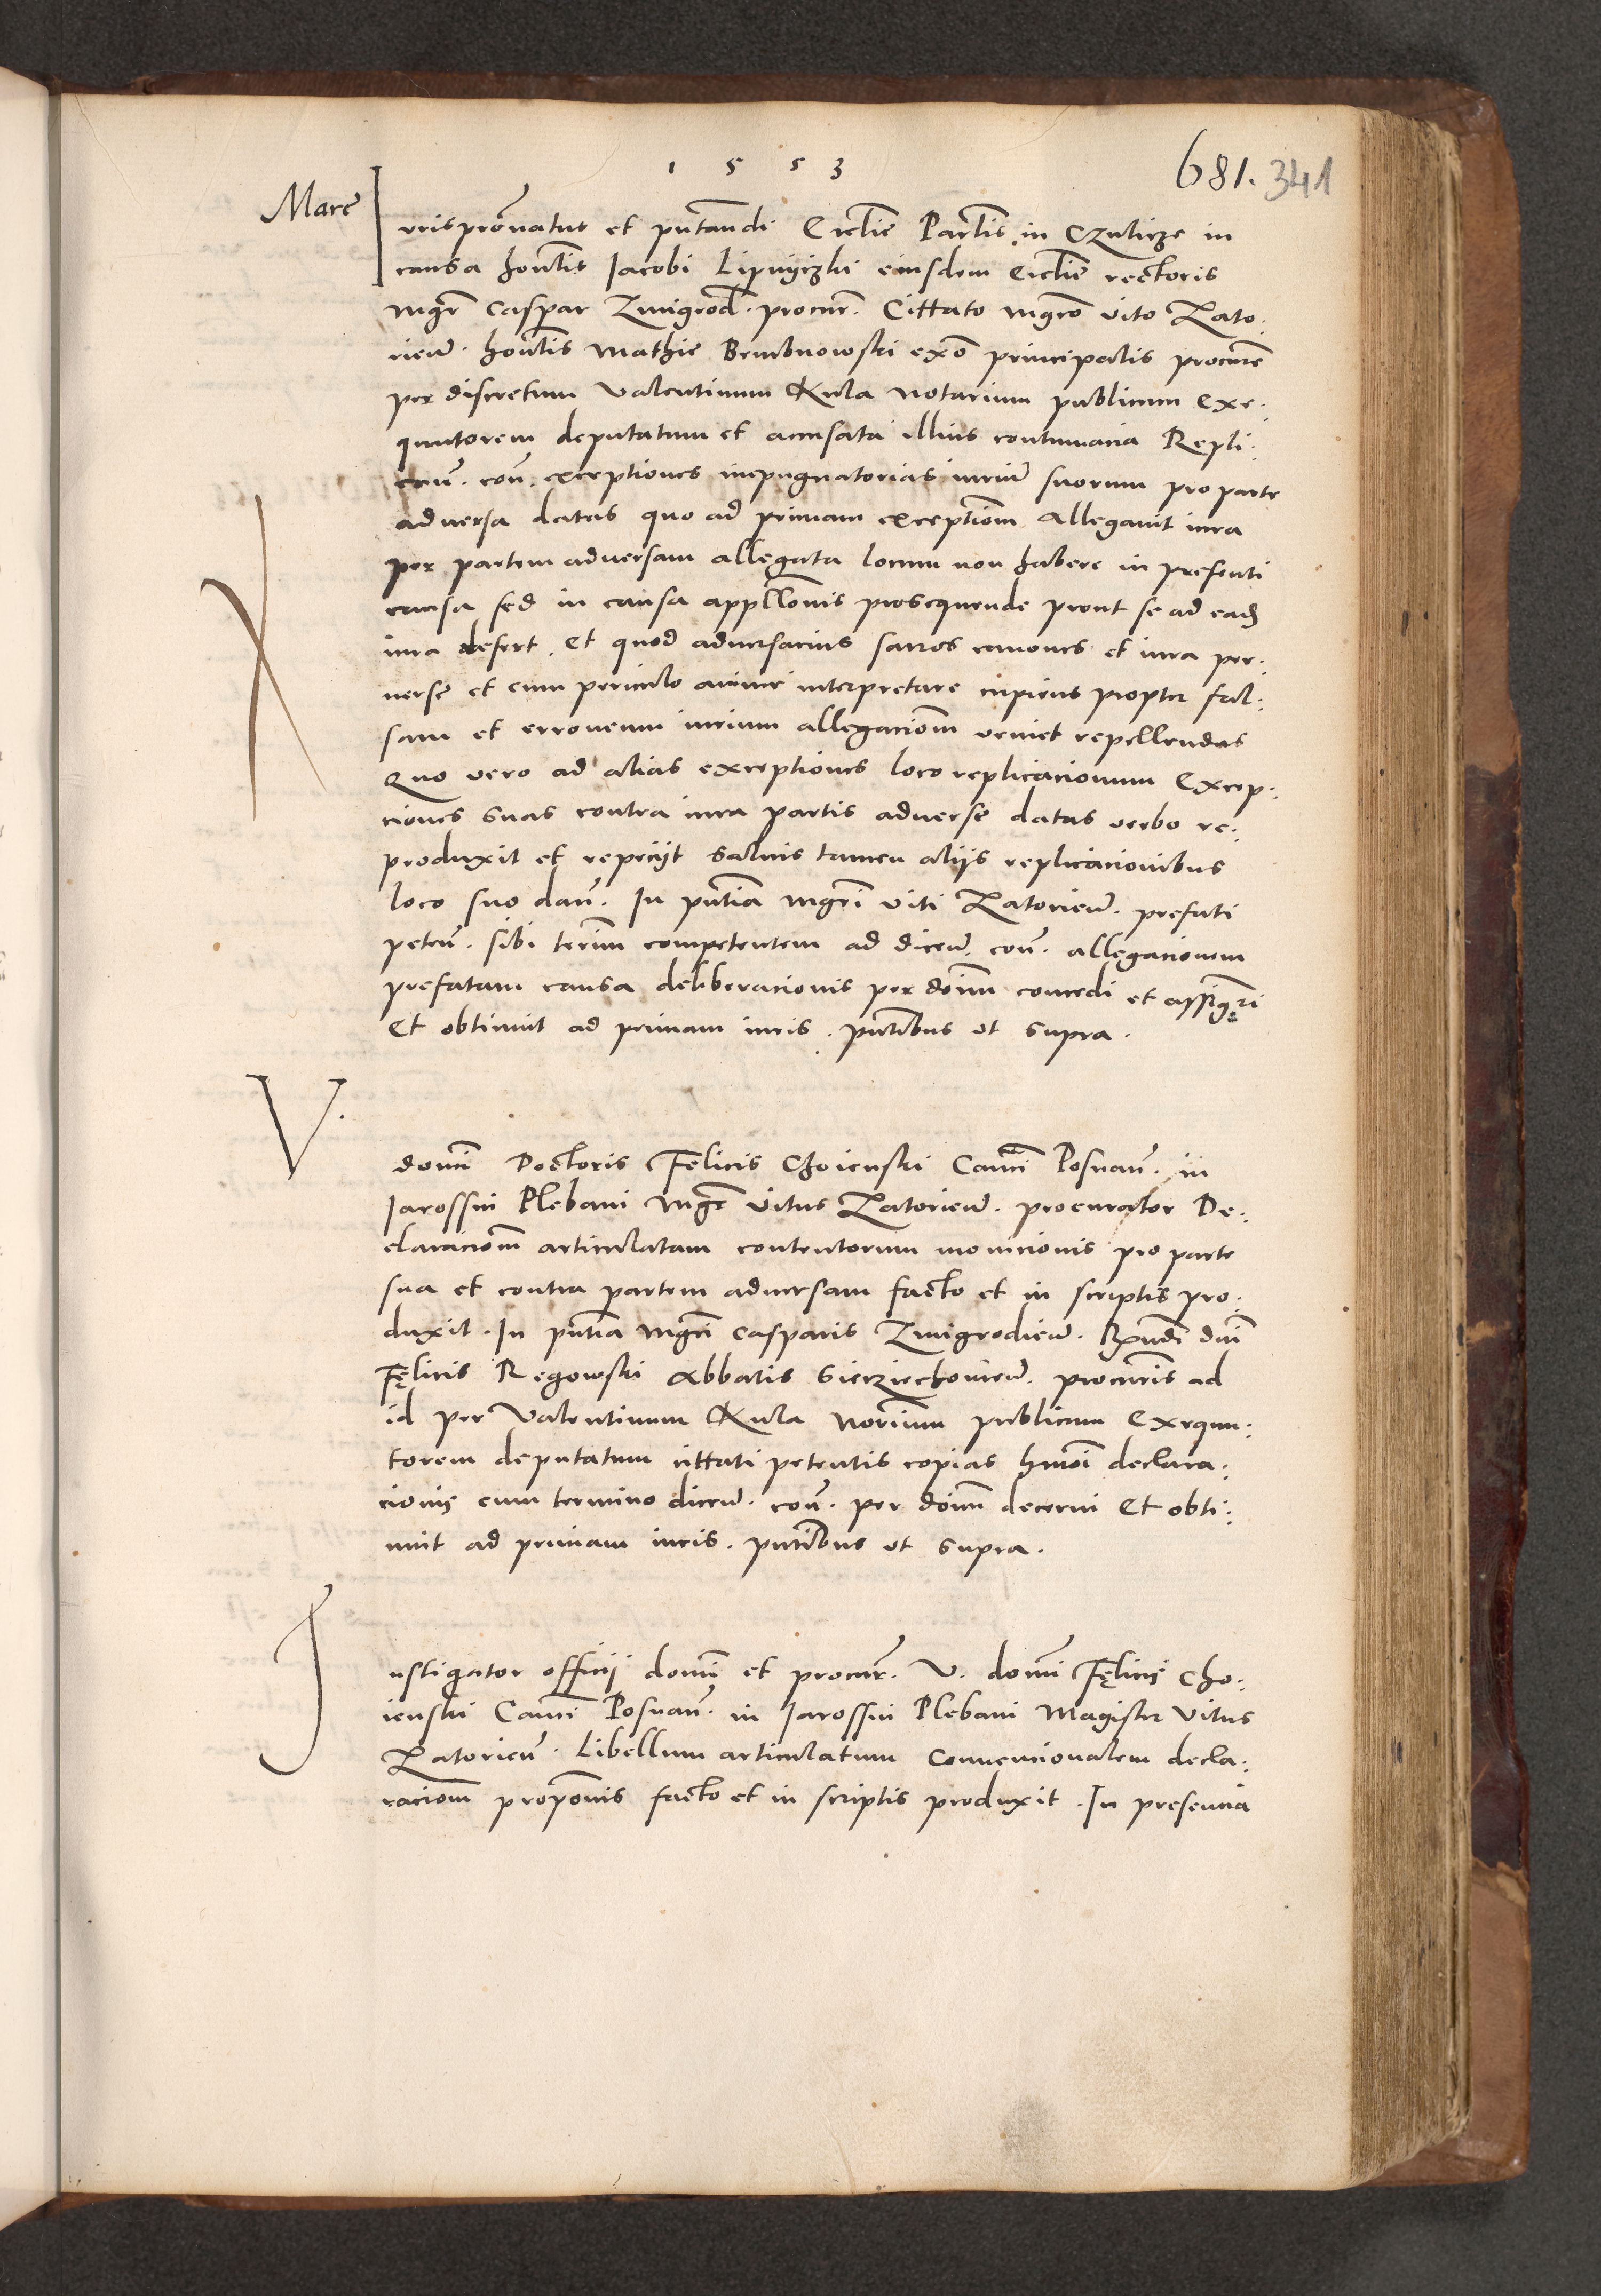 1553
681. 341
Marc
Iurispronatus et pntandi Ecclie Parlis in Czulicze in
causa honlis Iacobi Lipnyczki eiusdem Ecclie rectoris
Mgr Caspar Zmigrod. procur. Cittato Mgro Vito Lato:
wien. honlis Mathie Brmbnowski exo principalis procure
per discretum Valentinum Kula Notarium publicum Exe:
quutorem deputatum et accusata illius contumacia Repli:
con. exceptiones inpugnatorias iurium suorum pro parte
adversa datas quo ad primam exceptiom Allegavit iura
per partem adversam allegata locum non habere in presenti
causa sed in causa appllonis prosequende prout se ad ead
iura refert. Et quod adversarius sacros canones et iura per:
verse et cum periculo anime interpretare cupiens propter fal:
sam et erroneam iurium allegaciom veniet repellendas
Quo vero ad alias exceptiones loco replicacionum Excep:
ciones suas contra iura partis adverse datas verbo re:
produxit et repeciit Salvis tamen aliis replicacionibus
loco suo dan. In pntia Mgri Viti Latovien. prefati
peten. sibi terim competentem ad dicen. con. allegacionem
prefatam causa deliberacionis per doim concedi et assigri
Et obtinuit ad primam iuris. pntibus ut supra.
V.
domi Doctoris Felicis Choienski Canci Posnan. in
Iarossin Plebani Mgr Vitus Latovien. procurator De:
claraciom articulatam contentorum monicionis pro parte
sua et contra partem adversam facto et in scriptis pro:
duxit. In pntia Mgri Casparis Zmigrodien. Rndi dni
Felicis Regowski Abbatis Sieciechovien. procuris ad
id per Valentinum Kula Norium publicum Exequu:
torem deputatum cittati petentis copias hmoi declara:
cionis cum termino dicen. con. per doim decerni Et obti:
nuit ad primam iuris. pntibus ut supra.
Instigator officii domi et procur. V. domi Felicis Cho:
ienski Canci Posnan. in Iarossin Plebani Magister Vitus
Latovien. Libellum articulatum Convencionalem decla:
raciom proponis facto et in scriptis produxit. In presencia